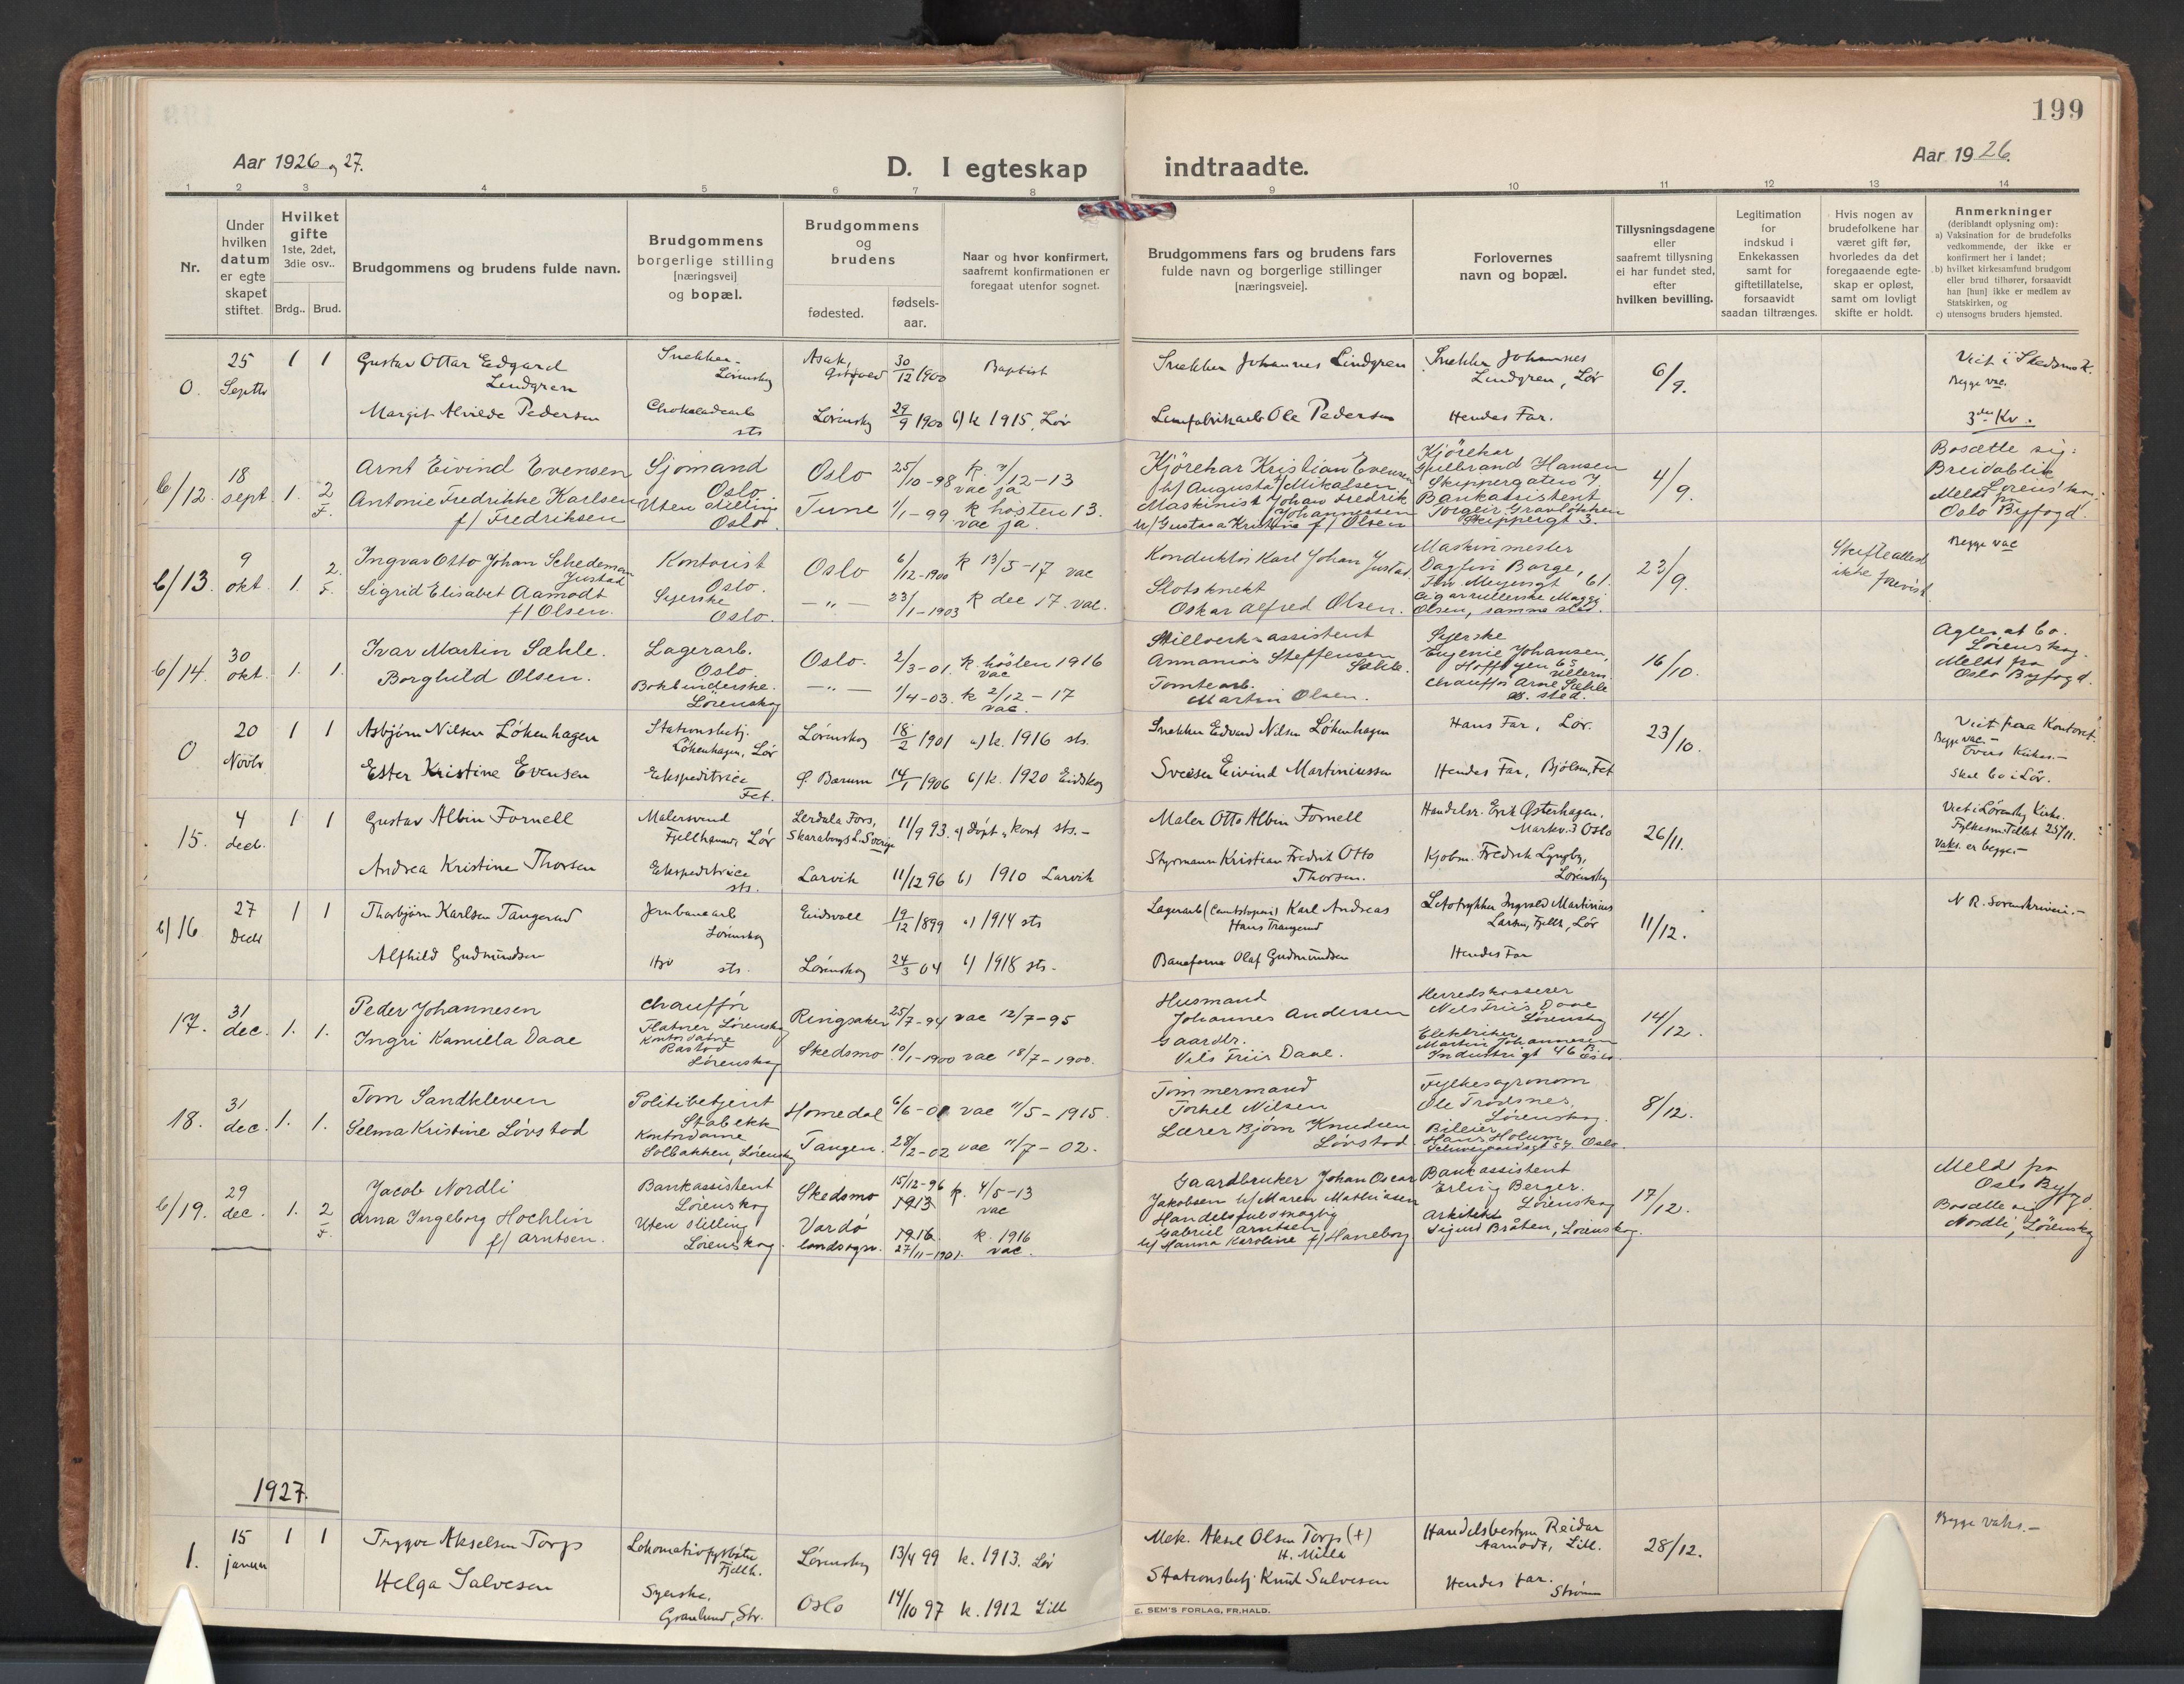 199
Aar 1926 og 27.
D. I egteskap indtraadte.
Aar 1926.
1 2 3 4 5 6 7 8 9 10 11 12 13 14
Nr.
Under hvilken datum er egteskapet stiftet.
Hvilket gifte 1ste, 2det, 3die osv..
Brdg.. Brud.
Brudgommens og brudens fulde navn.
Brudgommens borgerlige stilling [næringsvei] og bopæl.
Brudgommens og brudens
fødested.
fødsels-aar.
Naar og hvor konfirmert, saafremt konfirmationen er foregaat utenfor sognet.
Brudgommens fars og brudens fars fulde navn og borgerlige stillinger [næringsveie].
Forlovernes navn og bopæl.
Tillysningsdagene eller saafremt tillysning ei har fundet sted, efter hvilken bevilling.
Legitimation for indskud i Enkekassen samt for giftetillatelse, forsaavidt saadan tiltrænges.
Hvis nogen av brudefolkene har været gift før, hvorledes da det foregaaende egteskap er opløst, samt om lovligt skifte er holdt.
Anmerkninger
(deriblandt oplysning om):
a) Vaksination for de brudefolks vedkommende, der ikke er konfirmert her i landet;
b) hvilket kirkesamfund brudgom eller brud tilhører, forsaavidt han [hun] ikke er medlem av Statskirken, og
c) utensogns bruders hjemsted.
0. 25 Septbr 1 1 Gustav Ottar Edgard Lindgren Snekker Lørenskog Asak, 30/12 1900 Baptist Snekker Johannes Lindgren Snekker Johannes Lindgren, Lør 6/9. Viet i Skedsmo K. Begge vac.
Margit Alvilde Pedersen Chokoladearb sts Lørenskog 29/9 1900 b) k 1915, Lør Limfabrikarb Ole Pedersen Hendes Far. 3die Kv.
b/12. 18 sept. 1. 2 F. Arnt Eivind Evensen Sjømand Oslo Oslo 25/10-98 vac ja Kjørekar Kristian Evensen h/ Augusta f/ Mikalsen Kjørekar Gulbrand Hansen Skippergaten 7 4/9. Bosætte sig: Breidablik Lørenskog.
Antonie Fredrikke Karlsen f/ Fredriksen Uten stilling Oslo. Tune 1/1-99 k høsten 13. vac ja. Maskinist Johan Fredrik Johannessen h/ Gustava Kristine f/ Olsen Bankassistent Torgeir Gravløkken Skippergt 3. Meldt fra Oslo Byfogd.
b/13. 9 okt. 1. 2. F. Ingvar Otto Johan Schedeman Justad Kontorist Oslo. Oslo 6/12-1900 k 13/5-17 vac Konduktør Karl Johan Justad. Maskinmester Dagfin Borge, Ths Meyersgt 61. 23/9. Skifteattest ikke forevist Begge vac
Sigrid Elisabet Aamodt f/ Olsen. Syerske Oslo. —"— 23/1-1903 k dec 17. vac. Slotsknekt Oskar Alfred Olsen. Cigarrullerske Maggi Olsen, samme sted.
b/14. 30 okt. 1. 1. Ivar Martin Sæhle. Lagerarb. Oslo Oslo. 2/3-01. k. høsten 1916 vac Stillverksassistent Annanias Steffensen Sæhle. Syerske Eugenie Johansen, Ullern 16/10. Agter at bo Lørenskog.
Borghild Olsen. Bokbinderske. Lørenskog —"— 1/4-03. k 2/12-17 vac. Tomtearb. Martin Olsen. Chauffør Arne Sæhle sted. Meldt fra Oslo Byfogd.
0 20 Novbr 1 1 Asbjørn Nilsen Løkenhagen Stationsbetj. Løkenhagen, Lør Lørenskog 18/2 1901 a) k. 1916 sts. Snekker Edvard Nilsen Løkenhagen Hans Far, Lør. 23/10. Viet paa Kontoret. Begge vac.
Ester Kristine Evensen Ekspeditrice Fet. Ø. Bærum 14/1 1906 b) k. 1920 Eidskog Sveiser Eivind Martiniussen Hendes Far, Bjølsen, Fet Skal bo i Lør.
15. 4 decb. 1 1 Gustav Albin Fornell Malersvend Fjellhamar, Lør Lerdala Fors, Skaraborgs L. Sverige 11/9 93. a) døpt & konf sts.- Maler Otto Albin Fornell Handelsr. Erik Østerhagen. Markv. 3 Oslo 26/11. Viet i Lørenskog Kirke. Fylkesm. Tillat 25/11. Vaks. er begge.-
Andrea Kristine Thorsen Ekspeditrice sts. Larvik 11/12 96 b) 1910 Larvik Styrmann Kristian Fredrik Otto Thorsen. Kjøbm. Fredrik Lyngby, Lørenskog
b/16 27 Decbr 1 1 Thorbjørn Karlsen Tangerud Jernbanearb Lørenskog Eidsvoll 19/12 1899 a) 1914 sts Lagerarb Karl Andreas Hans Trangerud Litotrykker Ingvald Martinius Larsen, Fjellh, Lør 11/12. N R. Sorenskriveri.-
Alfhild Gudmundsen sts. Lørenskog 24/3 04 b) 1918 sts. Baneform Olaf Gudmundsen Hendes Far
17. 31 dec. 1. 1. Peder Johannesen Chauffør Flatner Lørenskog Ringsaker 25/7-94 vac 12/7-95 Husmand Johannes Andersen Herredskasserer Nils Friis Daae Lørenskog 14/12.
Ingri Kamilla Daae Kontordame Rastad Lørenskog Skedsmo 10/1-1900 vac 18/7-1900. Gaardbr. Nils Friis Daae. Elektriker Martin Johannesen Industrigt 46 B. Oslo
18. 31 dec. 1. 1. Tom Sandkleven Politibetjent Stabekk Homedal 6/6-01 vac 11/5-1915. Tømmermand Torkel Nilsen Fylkesagronom Ole Trødsnes, Lørenskog. 8/12.
Selma Kristine Løvstad Kontordame Solbakken, Lørenskog Tangen. 28/2-02 vac 11/7-02. Lærer Bjørn Knudsen Løvstad. Bileier Hans Holum Schweigaardsgt 57 Oslo.
b/19. 29 dec. 1. 2 F. Jacob Nordli Bankassistent Lørenskog Skedsmo 15/12-96 1913 k. 4/5-13 vac Gaardbruker Johan Oscar Jakobsen h/ Maren Mathiasen Bankassistent Erling Berger. Lørenskog 17/12. Meldt fra Oslo Byfogd.
Arna Ingeborg Hochlin f/ Arntsen. Uten stilling Lørenskog. Vardø landsogn. 1916. 27/11-1901. k. 1916 vac. Handelsfuldmægtig Gabriel Arntsen h/ Hanna Karoline f/ Haneborg Arkitekt Sigurd Bråten, Lørenskog. Bosætte sig Nordli, Lørenskog
1927.
1. 15 januar 1 1 Trygve Akselsen Torp Lokomotivfyrbøter Fjellh. Lørenskog 13/4 99 k. 1913. Lør Mek. Aksel Olsen Torp (+) H. Milla Handelsbestyrer Reidar Aamodt, Lill. 28/12. Begge vaks.-
Helga Salvesen Syerske, Granlund, Str. Oslo 14/10 97 k. 1912 Lill Stationsbetj. Knut Salvesen Hendes far. Strømm
E. SEM'S FORLAG, FR.HALD.